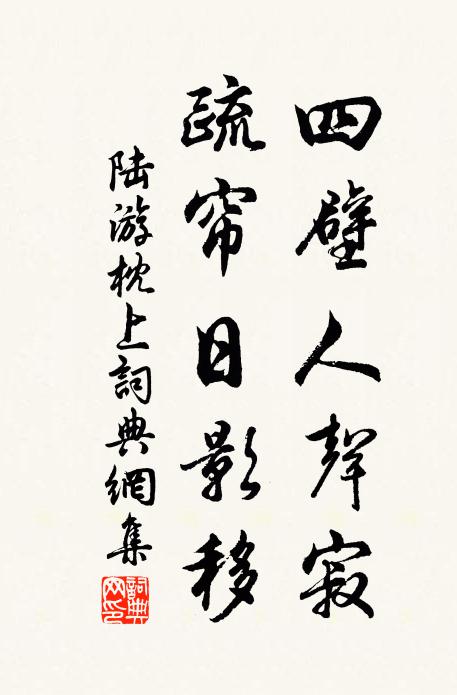 四壁人聲寂
疏帘日影移
陆游枕上詞典網集
詞典网印